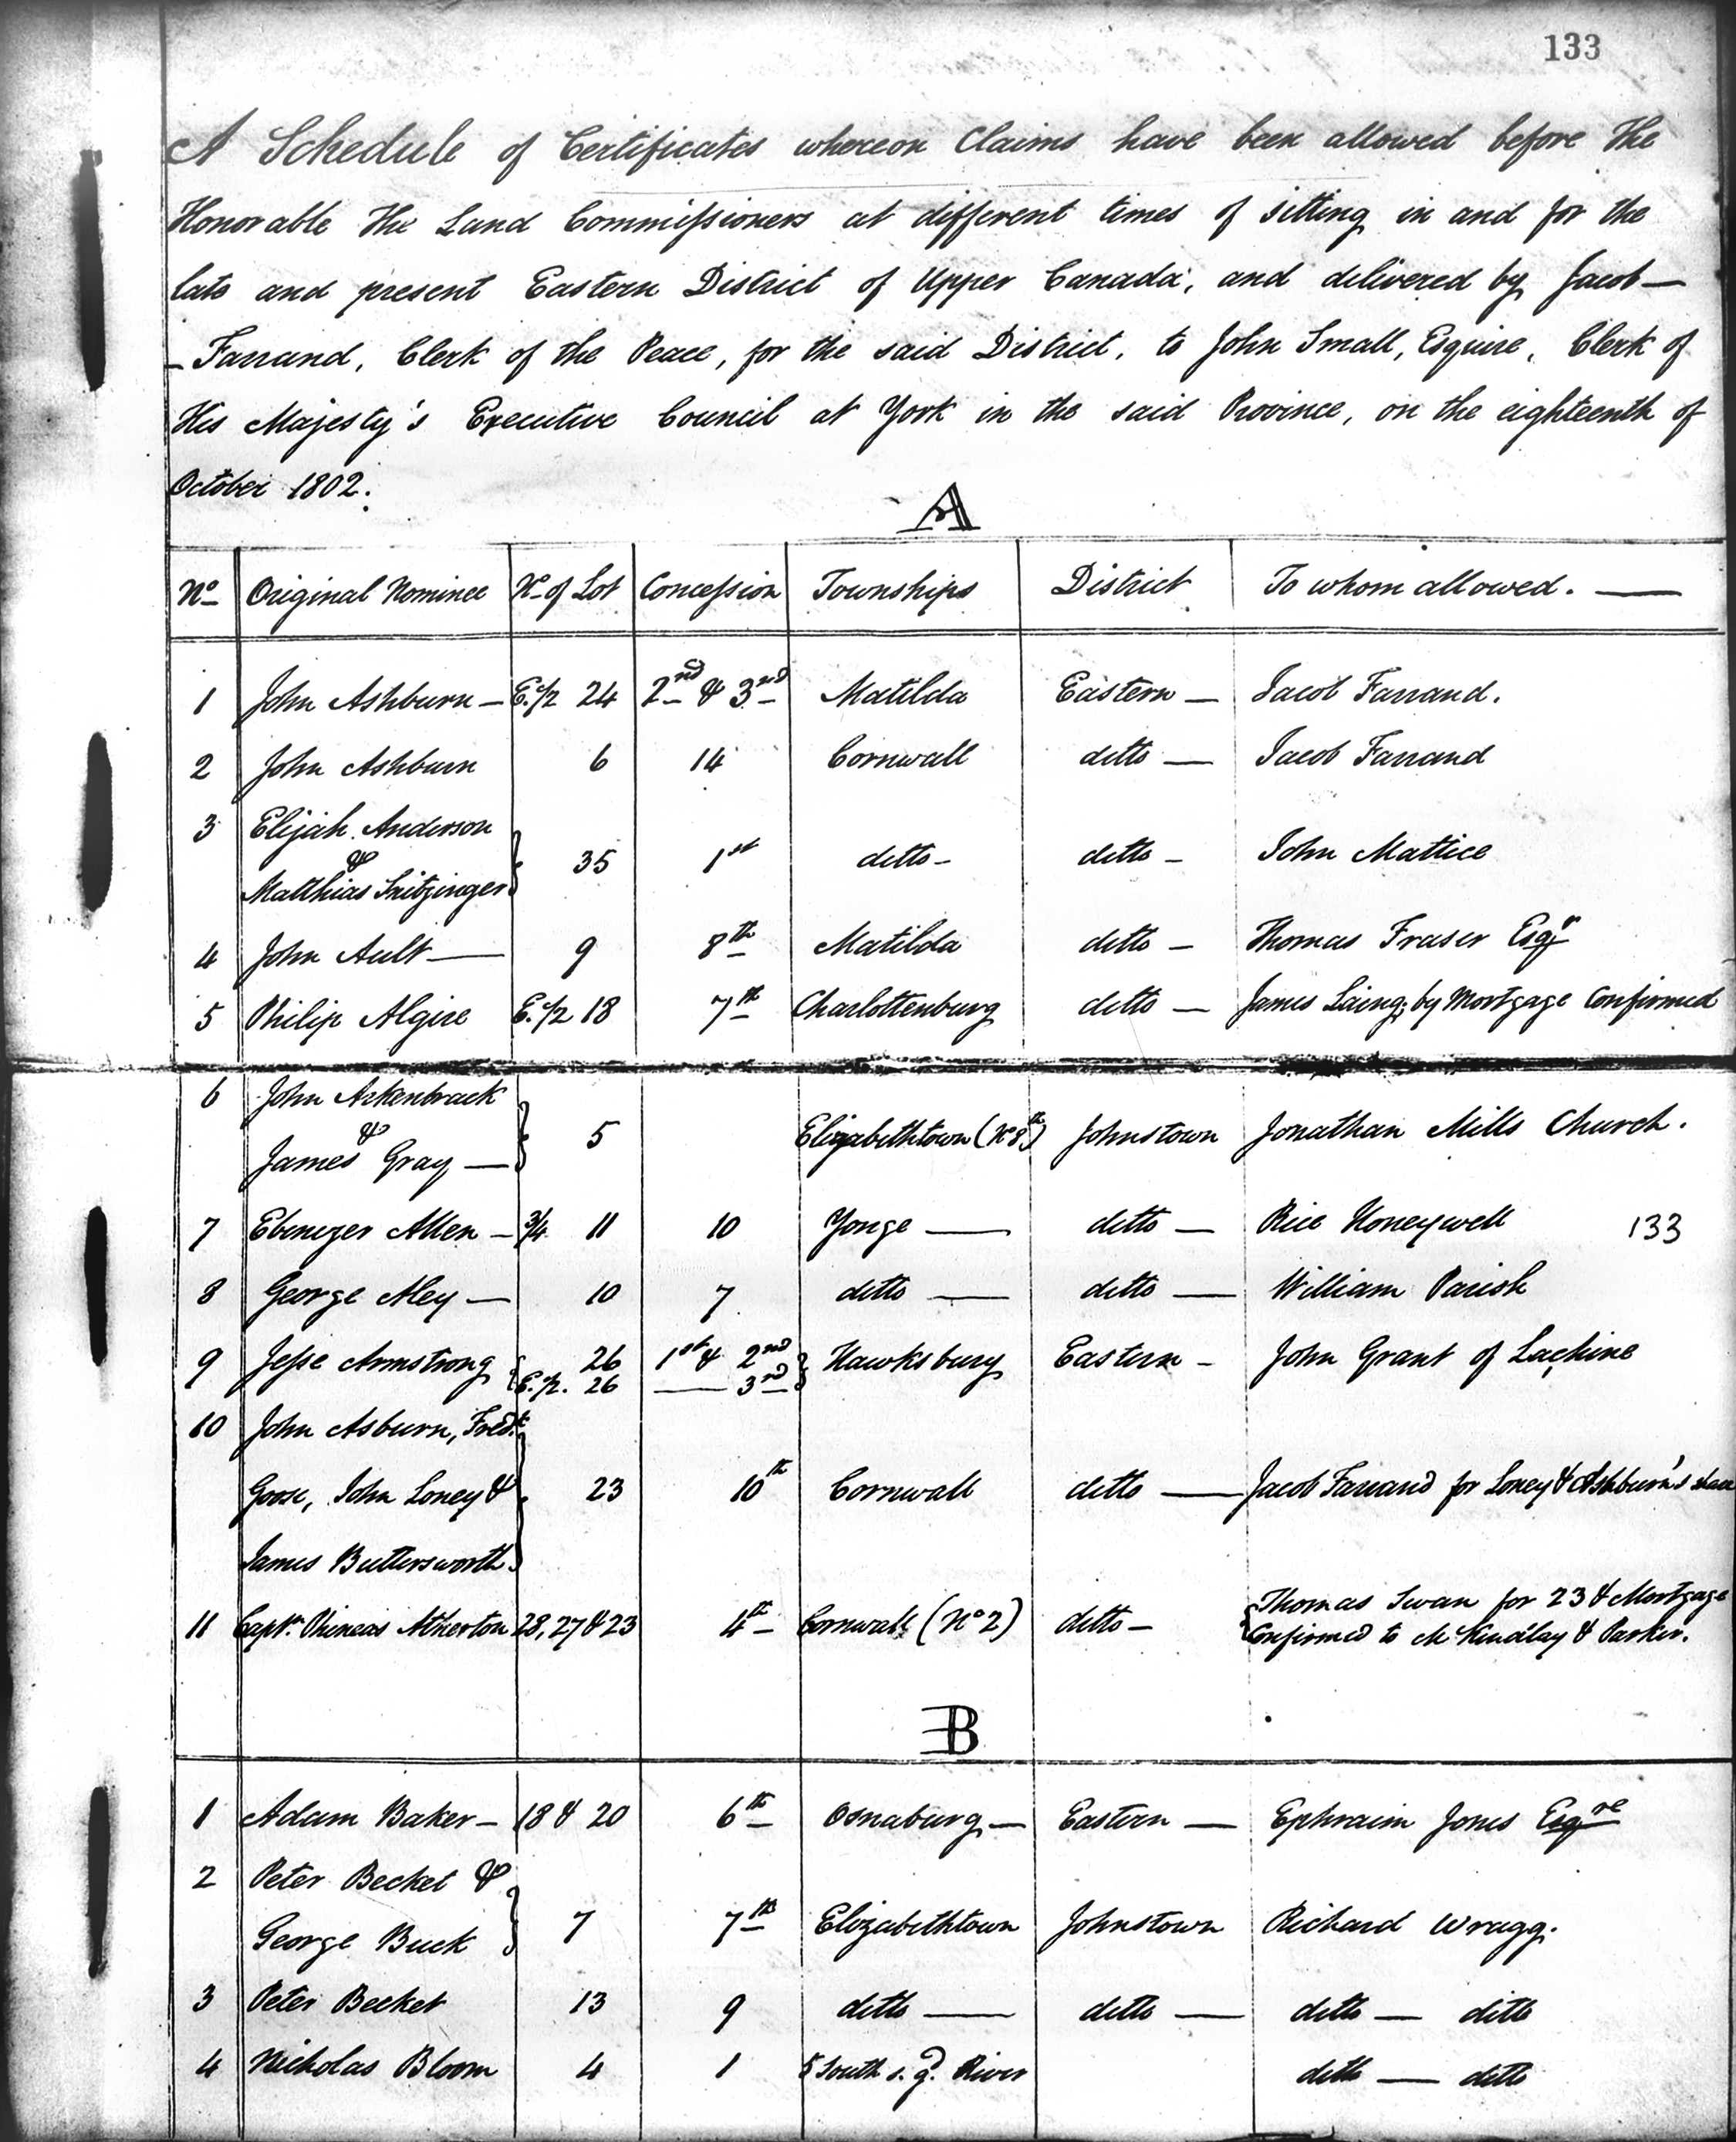 133
A Schedule of Certificates whereon Claims have been allowed before the
Honorable the Land Commissioners at different times of sitting in and for the
late and present Eastern District of Upper Canada, and delivered by Jacob —
— Farrand, Clerk of the Peace, for the said District, to John Small, Esquire, Clerk of
His Majesty's Executive Council at York in the said Province, on the eighteenth of
October 1802.
A
No Original Nominee No of Lot Concession Townships District To whom allowed. —
1 John Ashburn — E. 1/2 24 2nd & 3rd Matilda Eastern — Jacob Farrand.
2 John Ashburn 6 14 Cornwall ditto — Jacob Farrand
3 Elijah Anderson
& 35 1st ditto — ditto — John Mattice
Matthias Snitzinger
4 John Ault — 9 8th Matilda ditto — Thomas Fraser Esqr
5 Philip Algire E. 1/2 18 7th Charlottenburg ditto — James Laing, by Mortgage Confirmed
6 John Arkenbrack
& 5 Elizabethtown (No 8th) Johnstown Jonathan Mills Church.
James Gray —
7 Ebenezer Allen — 3/4 11 10 Yonge — ditto — Rice Honeywell 133
8 George Aley — 10 7 ditto — ditto — William Parish
9 Jesse Armstrong 26 1st & 2nd Hawksbury Eastern — John Grant of Lachine
E. 1/2. 26 — 3rd
10 John Asburn, Fredk
Goose, John Loney & 23 10th Cornwall ditto — Jacob Farrand for Loney & Ashburn's share
James Buttersworth
11 Captn Phineas Atherton 28, 27 & 23 4th Cornwall (No 2) ditto — Thomas Swan for 23 & Mortgage
Confirmed to McKindlay & Parker.
B
1 Adam Baker — 18 & 20 6th Osnaburg — Eastern — Ephraim Jones Esqre
2 Peter Becket &
George Buck 7 7th Elizabethtown Johnstown Richard Wragg.
3 Peter Becket 13 9 ditto — ditto — ditto — ditto
4 Nicholas Bloom 4 1 South s. River ditto — ditto